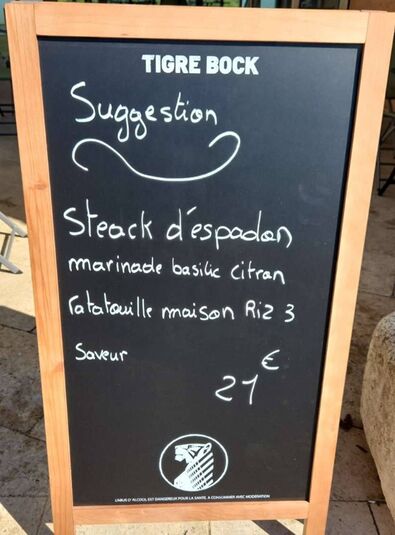 TIGRE BOCK
Suggestion
Steack d'espadon
marinade basilic citron
ratatouille maison Riz 3
Saveur
21 €
L'ABUS D'ALCOOL EST DANGEREUX POUR LA SANTÉ. A CONSOMMER AVEC MODERATION